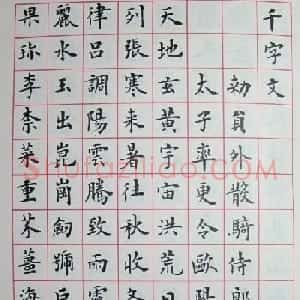 千字文
勅員外散騎侍郎
太子率更令歐
天地玄黃宇宙洪荒
列張寒来暑往秋收
律呂調陽雲騰致雨
麗水玉出崑崗劎號巨
果珍李柰菜重芥薑海